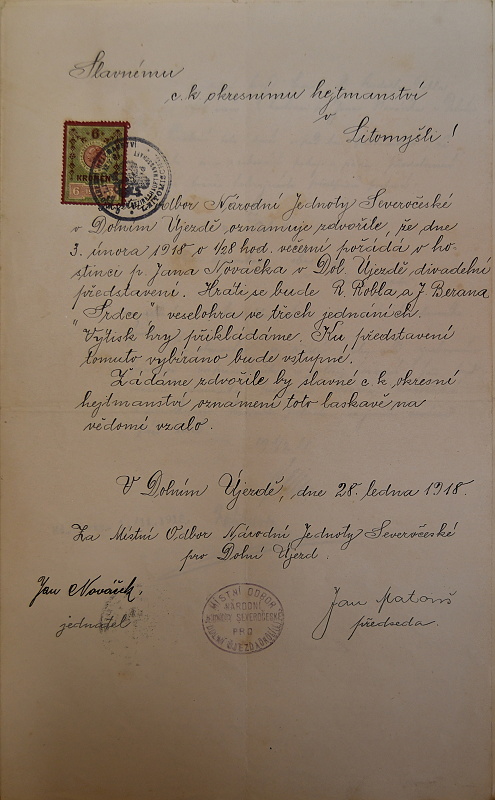 Slavnému
c. k okresnímu hejtmanství
v
Litomyšli!
6
KRONEN
6
Odbor Národní Jednoty Severočeské
v Dolním Újezdě oznamuje zdvořile, že dne
3. února 1918 o ½8 hod. večerní pořádá v ho-
stinci p. Jana Nováčka v Dol. Újezdě divadelní
představení. Hráti se bude R. Robla a J. Berana
"Srdce" veselohra ve třech jednáních.
Výtisk hry přikládáme. Ku představení
tomuto vybíráno bude vstupné.
Žádáme zdvořile by slavné c k okresní
hejtmanství oznámení toto laskavě na
vědomí vzalo.
V Dolním Újezdě, dne 28. ledna 1918.
Za Místní Odbor Národní Jednoty Severočeské
pro Dolní Újezd.
Jan Nováček,
jednatel
MÍSTNÍ ODBOR
NÁRODNÍ
JEDNOTY SEVEROČESKÉ
PRO
DOLNÍ ÚJEZD
Jan Matouš
předseda.